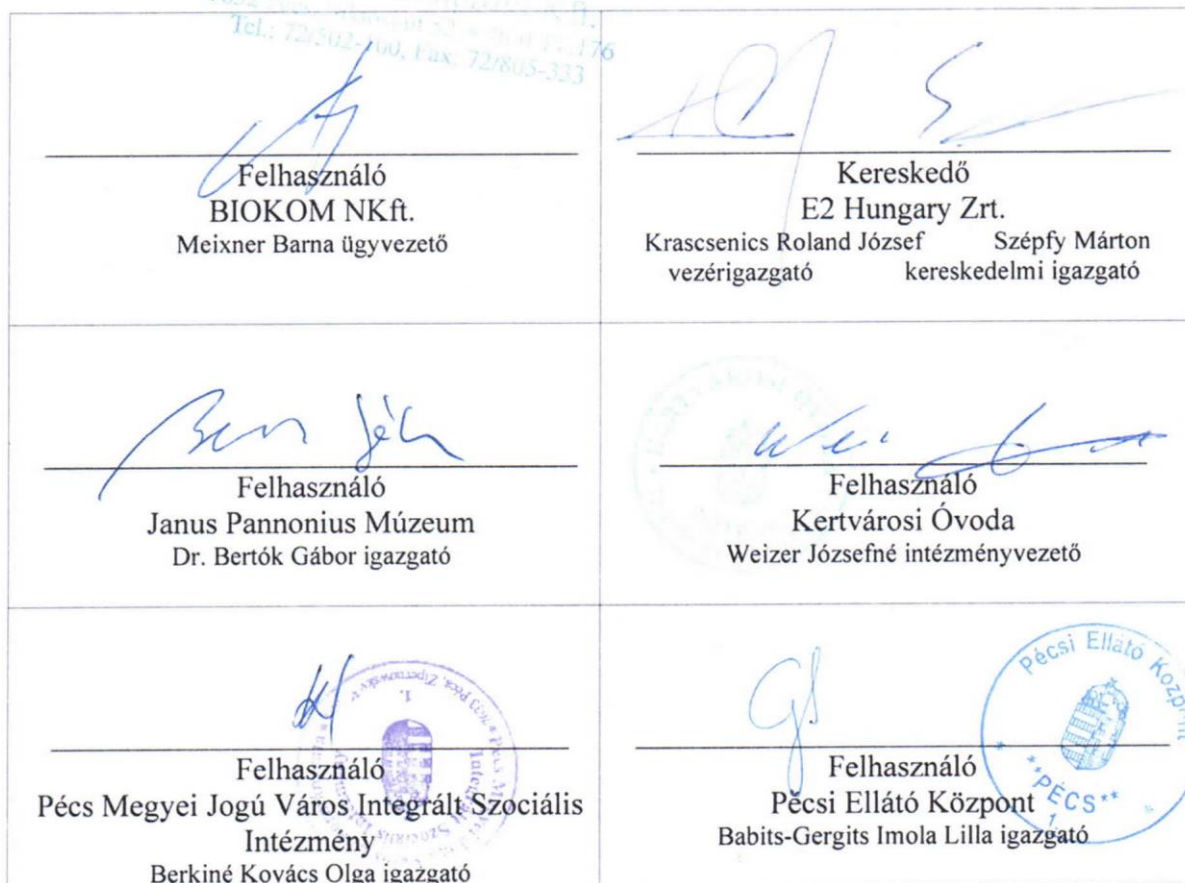 Tel.: 72/502-100, Fax: 72/805-333
Felhasználó
BIOKOM NKft.
Meixner Barna ügyvezető
Kereskedő
E2 Hungary Zrt.
Krascsenics Roland József Szépfy Márton
vezérigazgató kereskedelmi igazgató
Felhasználó
Janus Pannonius Múzeum
Dr. Bertók Gábor igazgató
Felhasználó
Kertvárosi Óvoda
Weizer Józsefné intézményvezető
Felhasználó
Pécs Megyei Jogú Város Integrált Szociális
Intézmény
Berkiné Kovács Olga igazgató
Pécsi Ellátó Központ
**PÉCS**
1.
Felhasználó
Pécsi Ellátó Központ
Babits-Gergits Imola Lilla igazgató